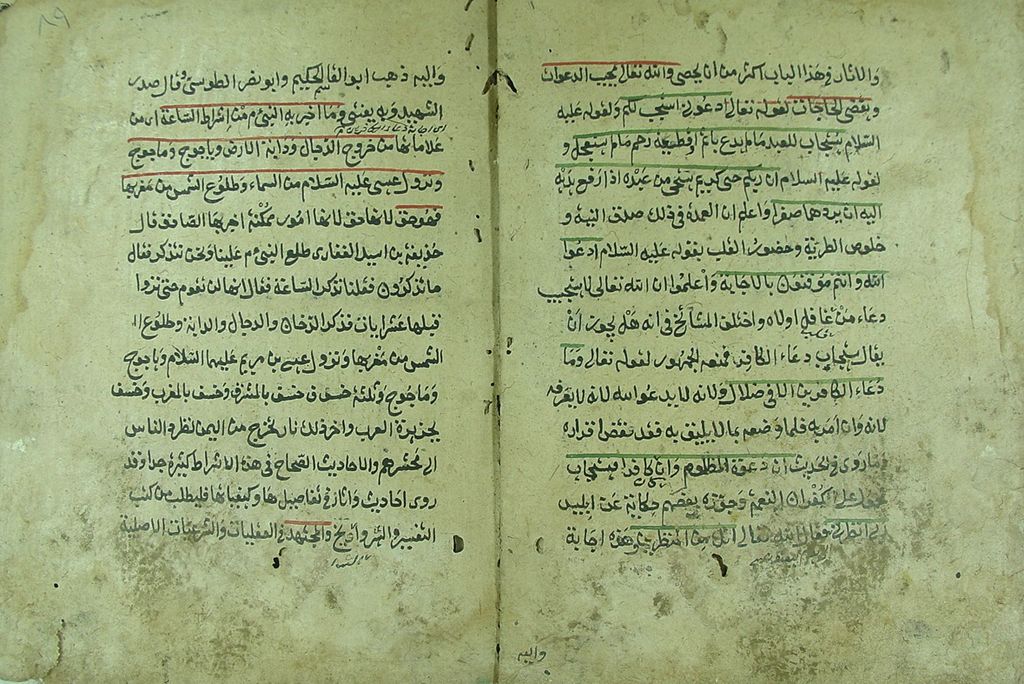 والآثار فى هذا الباب اكثر من ان يحصى والله تعالى يجيب الدعوات
ويقضى الحاجات لقوله تعالى ادعونى استجب لكم ولقوله عليه
السلام يستجاب للعبد مالم يدع باثم او قطيعة رحم مالم يستعجل و
لقوله عليه السلام ان ربكم حى كريم يستحيى من عبده اذا رفع يديه
اليه ان يردهما صفرا واعلم ان العمدة فى ذلك صدق النية و
خلوص الطوية وحضور القلب بقوله عليه السلام ادعوا
الله وانتم موقنون بالاجابة واعلموا ان الله تعالى لا يستجيب
دعاء من غافل لاه واختلف المشايخ فى انه هل يجوز ان
يقال يستجاب دعاء الكافر فمنعه الجمهور لقوله تعالى وما
دعاء الكافرين الا فى ضلال ولانه لا يدعوا الله لانه لا يعرفه
لانه وان اقر به فلما وصفه بما لا يليق به فقد نقض اقراره
وما روى فى الحديث ان دعوة المظلوم وان كان كافرا يستجاب
محمول على كفران النعمة وجوزه بعضهم حكاية عن ابليس
انظرنى فقال الله تعالى انك من المنظرين وهذه اجابة
واليه
٨٩
واليه ذهب ابو القاسم الحكيم وابو نصر الطوسى وقال صدر
الشهيد وبه يفتى وما اخبر به النبى م من اشراط الساعة اى من
علاماتها من خروج الدجال ودابة الارض وياجوج وماجوج
ونزول عيسى عليه السلام من السماء وطلوع الشمس من مغربها
فهو حق لانها حق لانها امور ممكنة اخبر بها الصادق قال
حذيفة بن اسيد الغفارى طلع النبى م علينا ونحن نتذكر فقال
ما تذكرون فقلنا نذكر الساعة فقال انها لن تقوم حتى تروا
قبلها عشر ايات فذكر الدخان والدجال والدابة وطلوع
الشمس من مغربها ونزول عيسى بن مريم عليهما السلام وياجوج
وماجوج وثلثة خسوف خسف بالمشرق وخسف بالمغرب وخسف
بجزيرة العرب واخر ذلك نار تخرج من اليمن تطرد الناس
الى محشرهم والاحاديث الصحاح فى هذه الاشراط كثيرة جدا وقد
روى احاديث واثار فى تفاصيلها وكيفياتها فليطلب من كتب
التفسير والسير والتواريخ والمجتهد فى العقليات والشرعيات الاصلية